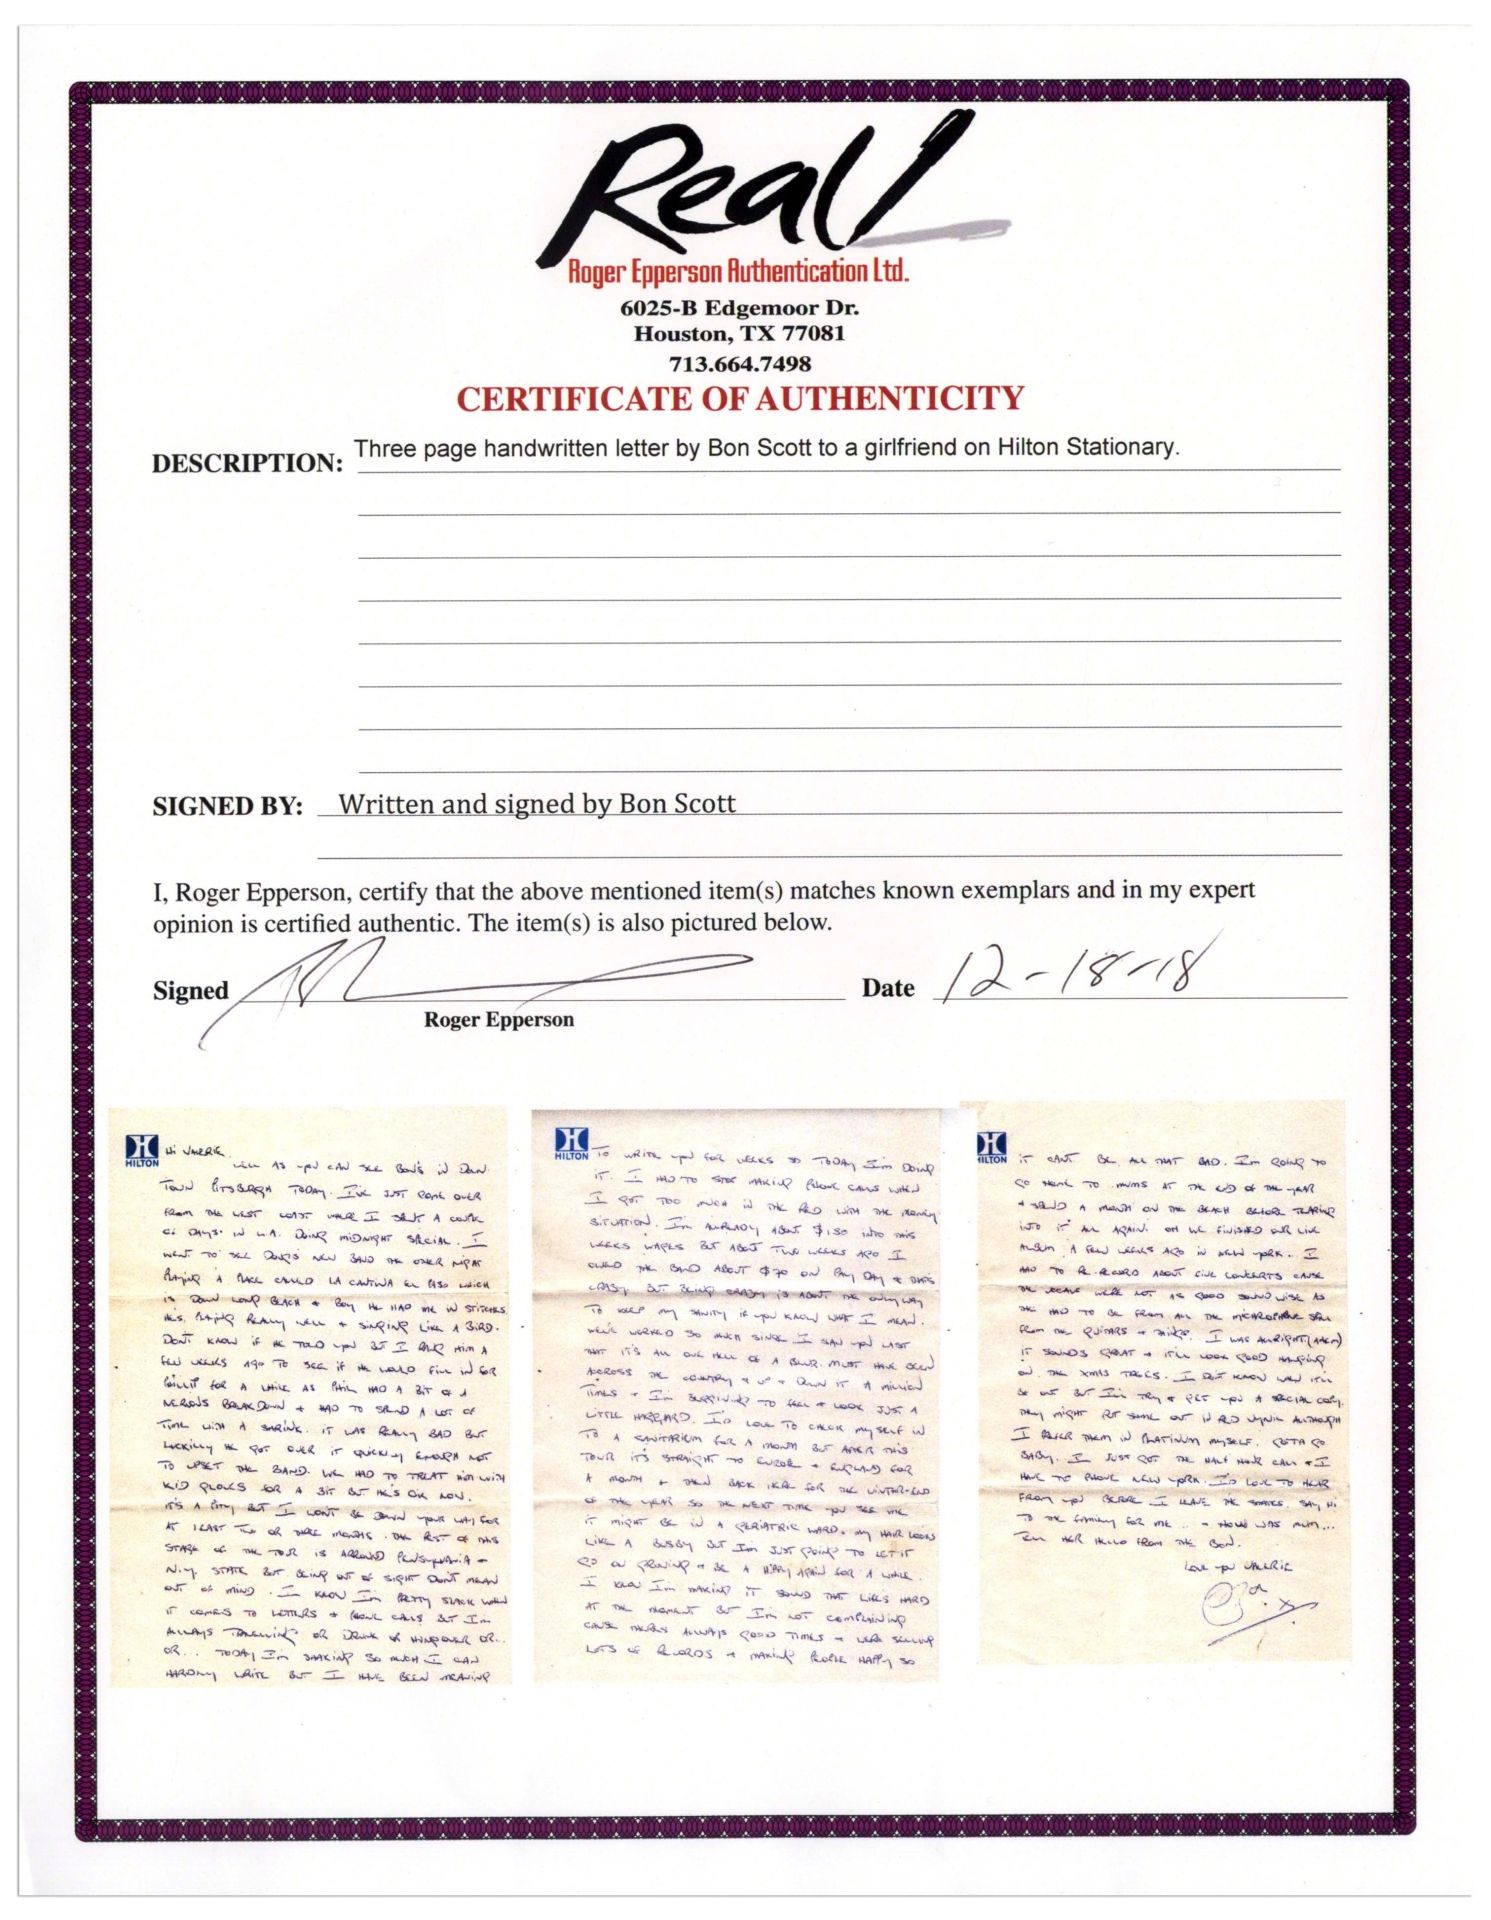 Real!
Roger Epperson Authentication Ltd.
6025-B Edgemoor Dr.
Houston, TX 77081
713.664.7498
CERTIFICATE OF AUTHENTICITY
DESCRIPTION: Three page handwritten letter by Bon Scott to a girlfriend on Hilton Stationary.
SIGNED BY: Written and signed by Bon Scott
I, Roger Epperson, certify that the above mentioned item(s) matches known exemplars and in my expert
opinion is certified authentic. The item(s) is also pictured below.
Signed
Date 12-18-18
Roger Epperson
HILTON
HI VALERIE
WELL AS YOU CAN SEE BON'S IN DOWN
TOWN PITSBURGH TODAY. I'VE JUST COME OVER
FROM THE WEST COAST WHERE I SPENT A COUPLE
OF DAYS IN L.A. DOING MIDNIGHT SPECIAL. I
WENT TO SEE DOUG'S NEW BAND THE OTHER NIGHT
PLAYING A PLACE CALLED LA CANTINA EL PASO WHICH
IS DOWN LONG BEACH + BOY HE HAD ME IN STITCHES.
HE'S PLAYING REALLY WELL + SINGING LIKE A BIRD.
DON'T KNOW IF HE TOLD YOU BUT I RANG HIM A
FEW WEEKS AGO TO SEE IF HE WOULD FILL IN FOR
PHILLIP FOR A WHILE AS PHIL HAD A BIT OF A
NERVOUS BREAKDOWN + HAD TO SPEND A LOT OF
TIME WITH A SHRINK. IT WAS REALLY BAD BUT
LUCKILLY HE GOT OVER IT QUICKLY ENOUGH NOT
TO UPSET THE BAND. WE HAD TO TREAT HIM WITH
KID GLOVES FOR A BIT BUT HE'S OK NOW.
IT'S A PITY BUT I WON'T BE DOWN YOUR WAY FOR
AT LEAST TWO OR THREE MONTHS. THE REST OF THIS
STAGE OF THE TOUR IS ARROUND PENSYLVANIA +
N.Y. STATE BUT BEING OUT OF SIGHT DON'T MEAN
OUT OF MIND. I KNOW I'M PRETTY SLACK WHEN
IT COMES TO LETTERS + PHONE CALLS BUT I'M
ALLWAYS TRAVELLING OR DRUNK OR HUNGOVER OR..
OR... TODAY I'M SHAKING SO MUCH I CAN
HARDLY WRITE BUT I HAVE BEEN MEANING
HILTON
TO WRITE YOU FOR WEEKS SO TODAY I'M DOING
IT. I HAD TO STOP MAKING PHONE CALLS WHEN
I GOT TOO MUCH IN THE RED WITH THE MONEY
SITUATION. I'M ALLREADY ABOUT $150 INTO THIS
WEEKS WAGES BUT ABOUT TWO WEEKS AGO I
OWED THE BAND ABOUT $70 ON PAY DAY + THAT'S
CRAZY. BUT BEING CRAZY IS ABOUT THE ONLY WAY
TO KEEP MY SANITY IF YOU KNOW WHAT I MEAN.
WE'VE WORKED SO MUCH SINCE I SAW YOU LAST
THAT IT'S ALL ONE HELL OF A BLUR. MUST HAVE BEEN
ACCROSS THE COUNTRY + UP + DOWN IT A MILLION
TIMES + I'M BEGINNING TO FEEL + LOOK JUST A
LITTLE HAGGARD. I'D LOVE TO CHECK MYSELF IN
TO A SANITARIUM FOR A MONTH BUT AFTER THIS
TOUR IT'S STRAIGHT TO EUROPE + ENGLAND FOR
A MONTH + THEN BACK HERE FOR THE WINTER-END
OF THE YEAR SO THE NEXT TIME YOU SEE ME
IT MIGHT BE IN A GERIATRIC WARD. MY HAIR LOOKS
LIKE A BUSBY BUT I'M JUST GOING TO LET IT
GO ON GROWING + BE A HIPPY AGAIN FOR A WHILE.
I KNOW I'M MAKING IT SOUND THAT LIFE'S HARD
AT THE MOMENT BUT I'M NOT COMPLAINING
CAUSE THERES ALLWAYS GOOD TIMES + WERE SELLING
LOTS OF RECORDS + MAKING PEOPLE HAPPY SO
HILTON
IT CAN'T BE ALL THAT BAD. I'M GOING TO
GO HOME TO MUMS AT THE END OF THE YEAR
+ SPEND A MONTH ON THE BEACH BEFORE TEARING
INTO IT ALL AGAIN. OH WE FINISHED OUR LIVE
ALBUM A FEW WEEKS AGO IN NEW YORK. I
HAD TO RE-RECORD ABOUT FIVE CONCERTS CAUSE
THE VOCALS WERE NOT AS GOOD SOUND WISE AS
THE HAD TO BE FROM ALL THE MICROPHONE SPILL
FROM THE GUITARS + THINGS. I WAS ALLRIGHT (AHEM)
IT SOUNDS GREAT + IT'LL LOOK GOOD HANGING
ON THE XMAS TREES. I DON'T KNOW WHEN IT'LL
BE OUT BUT I'LL TRY + GET YOU A SPECIAL COPY.
THEY MIGHT PUT SOME OUT IN RED VYNIL ALTHOUGH
I PREFER THEM IN PLATINUM MYSELF. GOTA GO
BABY. I JUST GOT THE HALF HOUR CALL + I
HAVE TO PHONE NEW YORK. I'D LOVE TO HEAR
FROM YOU BEFORE I LEAVE THE STATES. SAY HI
TO THE FAMILY FOR ME .. + HOWS MUM...
TELL HER HELLO FROM THE BON.
LOVE YOU VALERIE
Bon x